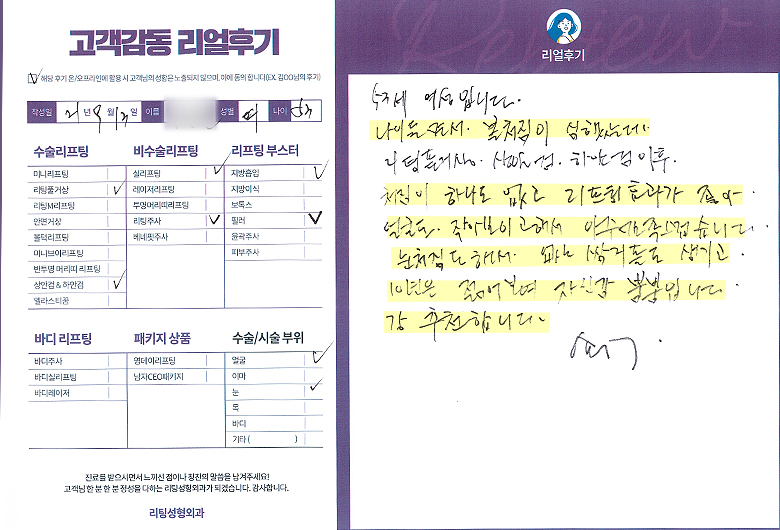 고객감동 리얼후기
해당 후기 온/오프라인에 활용 시 고객님의 성함은 노출되지 않으며, 이에 동의 합니다(EX. 김OO님의 후기)
작성일 21년 9월 일 이름 성별 여 나이
수술리프팅
미니리프팅
리팅풀거상
리팅M리프팅
안면거상
볼턱리프팅
미니브이리프팅
반투명 머리띠 리프팅
상안검 & 하안검
엘라스티꿈
비수술리프팅
실리프팅
레이저리프팅
투명머리띠리프팅
리팅주사
베네핏주사
리프팅 부스터
지방흡입
지방이식
보톡스
필러
윤곽주사
피부주사
바디 리프팅
바디주사
바디실리프팅
바디레이저
패키지 상품
영데이리프팅
남자CEO패키지
수술/시술 부위
얼굴
이마
눈
목
바디
기타 ( )
진료를 받으시면서 느끼신 점이나 칭찬의 말씀을 남겨주세요!
고객님 한 분 한 분 정성을 다하는 리팅성형외과가 되겠습니다. 감사합니다.
리팅성형외과
Review
리얼후기
여성입니다.
나이들면서 볼처짐이 심했는데
리팅풀거상. 상안검. 하안검 이후.
처짐이 하나도 없고 리프팅효과가 좋아
얼굴도 작아보이고해서 아주 만족스럽습니다.
눈처짐도 해서. 쌍거풀도 생기고
10년은 젊어보여 자신감 뿜뿜입니다
강 추천합니다.